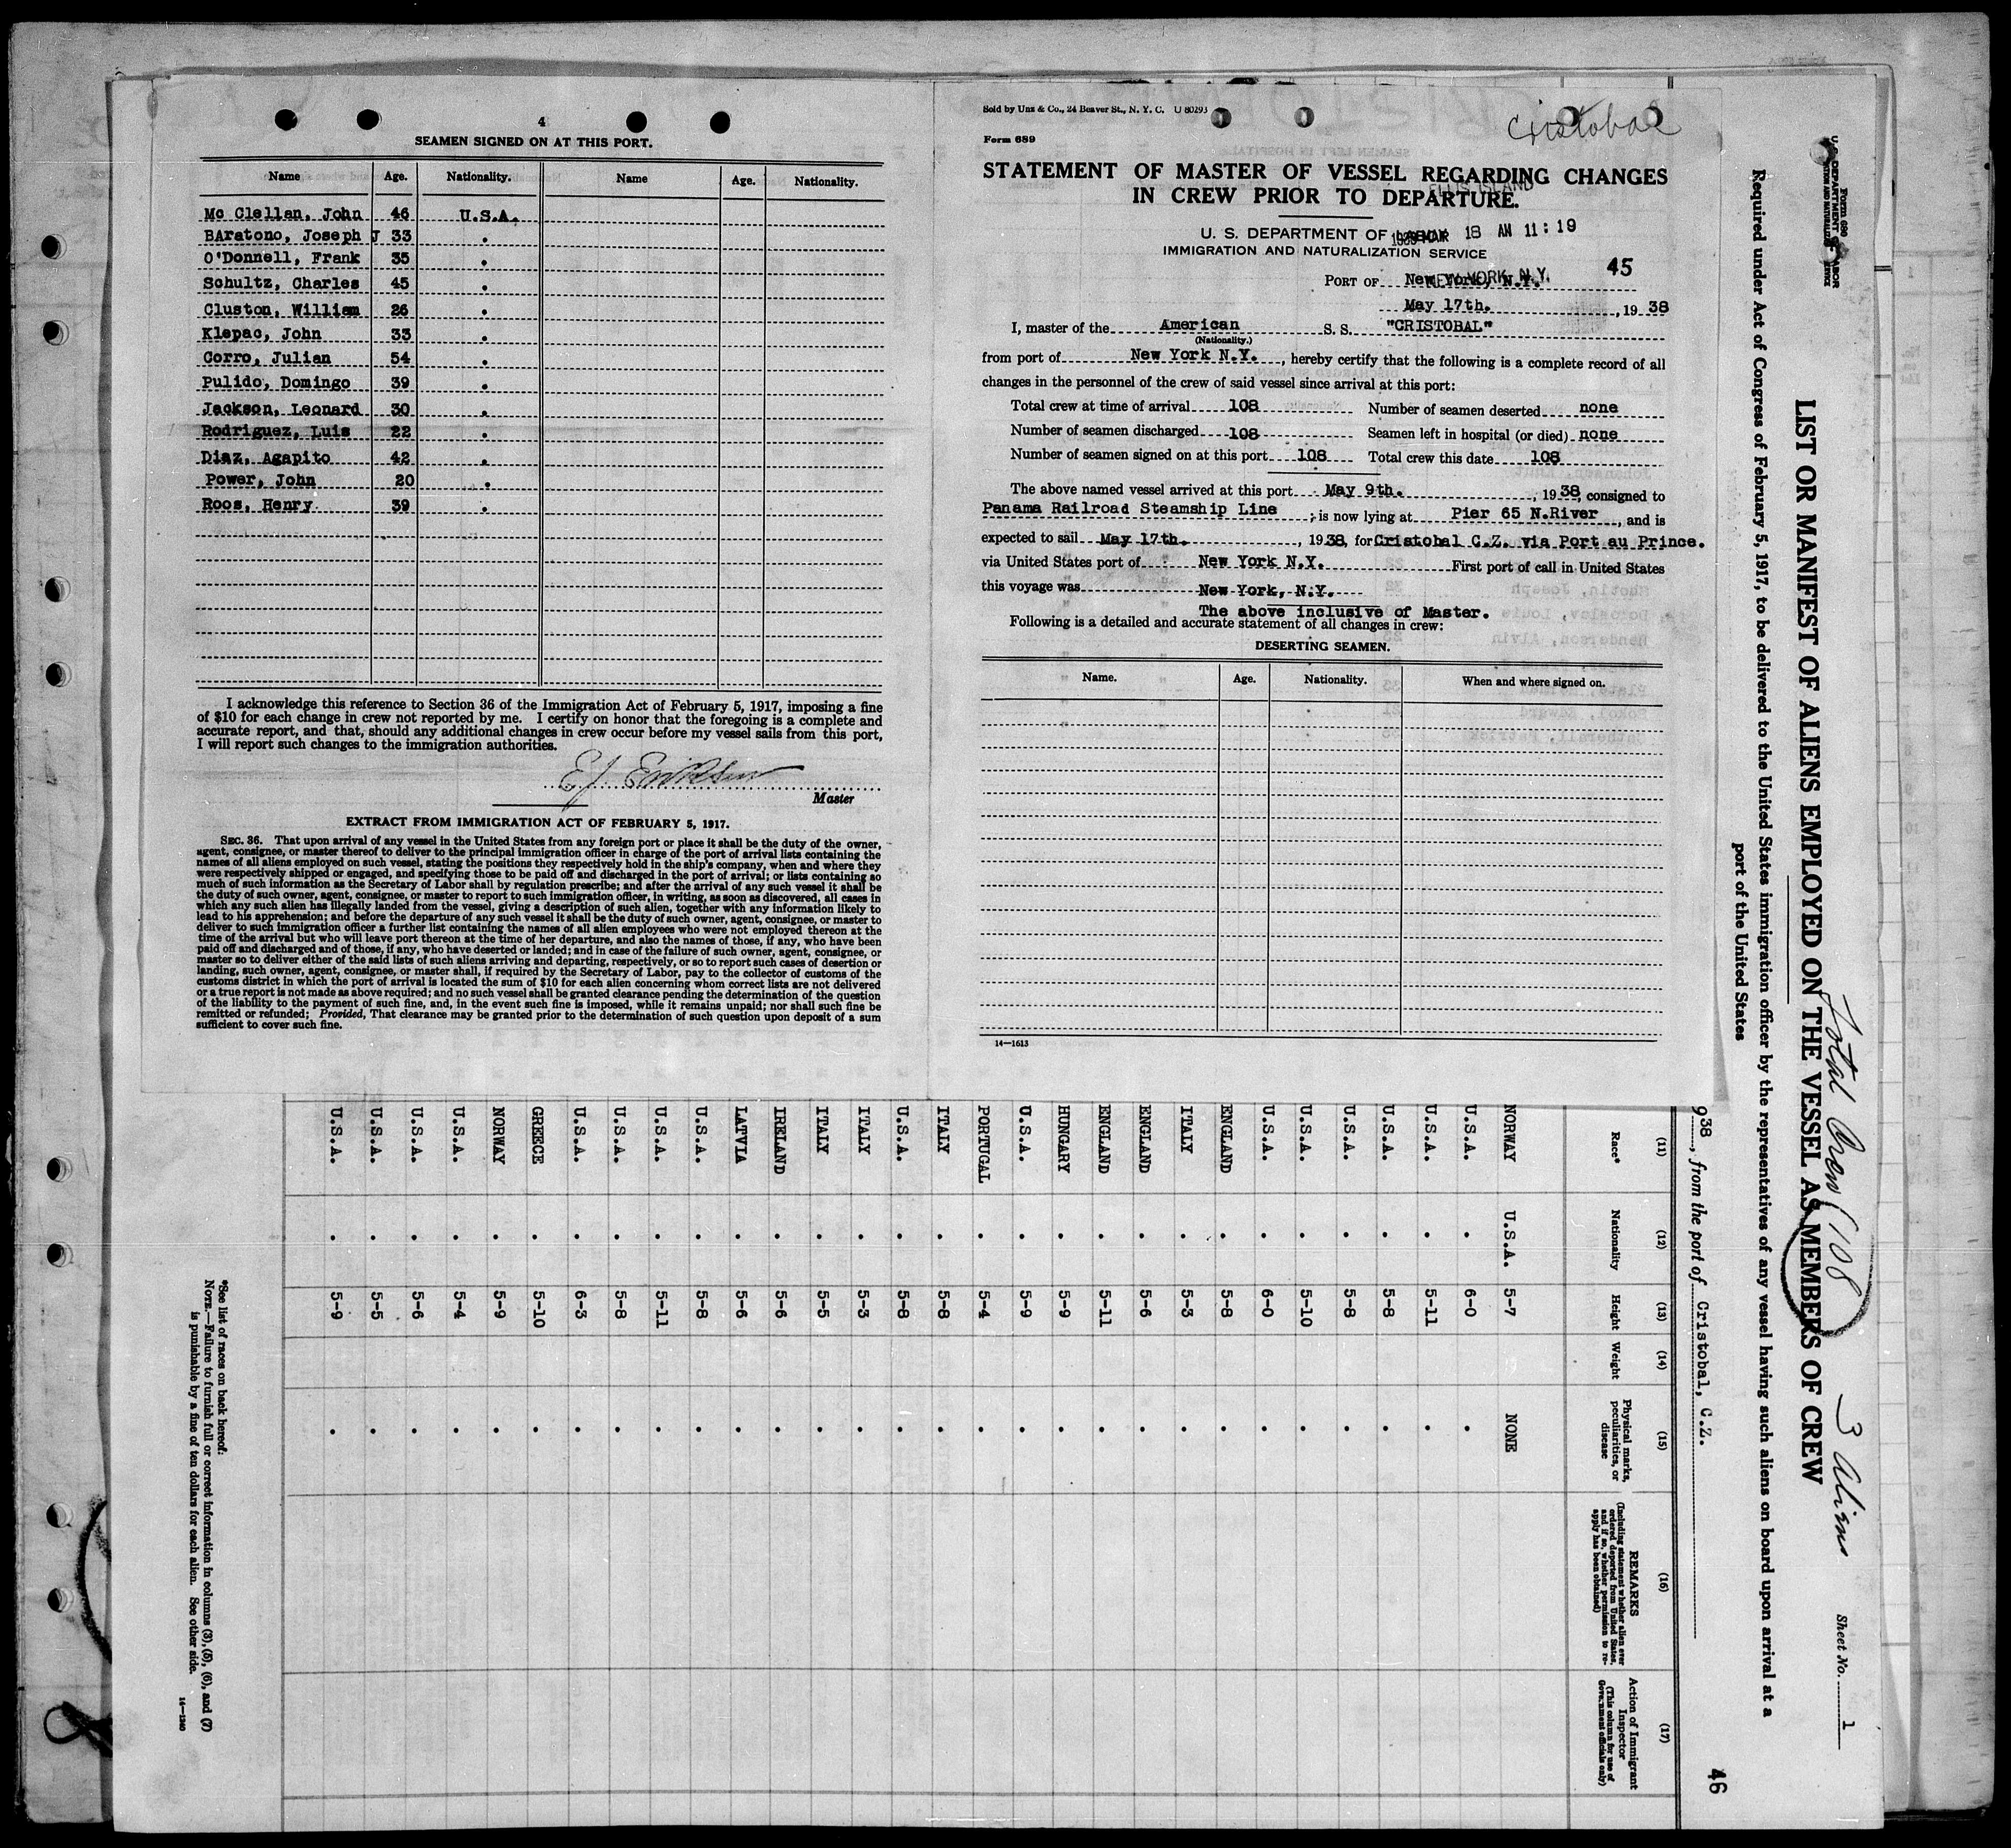 4
SEAMEN SIGNED ON AT THIS PORT.
Name Age. Nationality. Name Age. Nationality.
Mc Clellan, John 46 U.S.A.
BAratono, Joseph J 33 "
O'Donnell, Frank 35 "
Schultz, Charles 45 "
Cluston, William 26 "
Klepac, John 33 "
Corro, Julian 54 "
Pulido, Domingo 39 "
Jackson, Leonard 30 "
Rodriguez, Luis 22 "
Diaz, Agapito 42 "
Power, John 20 "
Roos, Henry 39 "
I acknowledge this reference to Section 36 of the Immigration Act of February 5, 1917, imposing a fine
of $10 for each change in crew not reported by me. I certify on honor that the foregoing is a complete and
accurate report, and that, should any additional changes in crew occur before my vessel sails from this port,
I will report such changes to the immigration authorities.
E.J. Eriksen
Master
EXTRACT FROM IMMIGRATION ACT OF FEBRUARY 5, 1917.
SEC. 36. That upon arrival of any vessel in the United States from any foreign port or place it shall be the duty of the owner,
agent, consignee, or master thereof to deliver to the principal immigration officer in charge of the port of arrival lists containing the
names of all aliens employed on such vessel, stating the positions they respectively hold in the ship's company, when and where they
were respectively shipped or engaged, and specifying those to be paid off and discharged in the port of arrival; or lists containing so
much of such information as the Secretary of Labor shall by regulation prescribe; and after the arrival of any such vessel it shall be
the duty of such owner, agent, consignee, or master to report to such immigration officer, in writing, as soon as discovered, all cases in
which any such alien has illegally landed from the vessel, giving a description of such alien, together with any information likely to
lead to his apprehension; and before the departure of any such vessel it shall be the duty of such owner, agent, consignee, or master to
deliver to such immigration officer a further list containing the names of all alien employees who were not employed thereon at the
time of the arrival but who will leave port thereon at the time of her departure, and also the names of those, if any, who have been
paid off and discharged and of those, if any, who have deserted or landed; and in case of the failure of such owner, agent, consignee, or
master so to deliver either of the said lists of such aliens arriving and departing, respectively, or so to report such cases of desertion or
landing, such owner, agent, consignee, or master shall, if required by the Secretary of Labor, pay to the collector of customs of the
customs district in which the port of arrival is located the sum of $10 for each alien concerning whom correct lists are not delivered
or a true report is not made as above required; and no such vessel shall be granted clearance pending the determination of the question
of the liability to the payment of such fine, and, in the event such fine is imposed, while it remains unpaid; nor shall such fine be
remitted or refunded; Provided, That clearance may be granted prior to the determination of such question upon deposit of a sum
sufficient to cover such fine.
Sold by Unz & Co., 24 Beaver St., N. Y. C. U 80293
Cristobal
Form 689
STATEMENT OF MASTER OF VESSEL REGARDING CHANGES
IN CREW PRIOR TO DEPARTURE.
ELLIS ISLAND
U. S. DEPARTMENT OF LABOR
18 AM 11:19
IMMIGRATION AND NATURALIZATION SERVICE
NEW YORK, N.Y.
45
PORT OF New York, N.Y.
May 17th. , 1938
I, master of the American S. S. "CRISTOBAL"
(Nationality.)
from port of New York N.Y. , hereby certify that the following is a complete record of all
changes in the personnel of the crew of said vessel since arrival at this port:
Total crew at time of arrival 108 Number of seamen deserted none
Number of seamen discharged 108 Seamen left in hospital (or died) none
Number of seamen signed on at this port 108 Total crew this date 108
The above named vessel arrived at this port May 9th. , 1938, consigned to
Panama Railroad Steamship Line ; is now lying at Pier 65 N.River , and is
expected to sail May 17th. , 1938, for Cristobal C.Z. via Port au Prince.
via United States port of New York N.Y. First port of call in United States
this voyage was New York, N.Y.
The above inclusive of Master.
Following is a detailed and accurate statement of all changes in crew:
DESERTING SEAMEN.
Name. Age. Nationality. When and where signed on.
14—1613
Form 680
U. S. DEPARTMENT OF LABOR
Total Crew (108 3 Aliens
Sheet No. 1
LIST OR MANIFEST OF ALIENS EMPLOYED ON THE VESSEL AS MEMBERS OF CREW
Required under Act of Congress of February 5, 1917, to be delivered to the United States immigration officer by the representatives of any vessel having such aliens on board upon arrival at a
port of the United States
46
938, from the port of Cristobal, C.Z.
(11) (12) (13) (14) (15) (16) (17)
Race* Nationality Height Weight Physical marks, peculiarities, or disease REMARKS (Including statement whether alien ever ordered deported from United States, and if so, whether permission to reapply has been obtained) Action of Immigrant Inspector (This column for use of Government officials only)
NORWAY U.S.A. 5-7 NONE
U.S.A. " 6-0 "
U.S.A. " 5-11 "
U.S.A. " 5-8 "
U.S.A. " 5-8 "
U.S.A. " 5-10 "
U.S.A. " 6-0 "
ENGLAND " 5-8 "
ITALY " 5-3 "
ENGLAND " 5-6 "
ENGLAND " 5-11 "
HUNGARY " 5-9 "
U.S.A. " 5-9 "
PORTUGAL " 5-4 "
ITALY " 5-8 "
U.S.A. " 5-8 "
ITALY " 5-3 "
ITALY " 5-5 "
IRELAND " 5-6 "
LATVIA " 5-6 "
U.S.A. " 5-8 "
U.S.A. " 5-11 "
U.S.A. " 5-8 "
U.S.A. " 6-3 "
GREECE " 5-10 "
NORWAY " 5-9 "
U.S.A. " 5-4 "
U.S.A. " 5-6 "
U.S.A. " 5-5 "
U.S.A. " 5-9 "
*See list of races on back hereof.
NOTE.—Failure to furnish full or correct information in columns (3), (5), (6), and (7)
is punishable by a fine of ten dollars for each alien. See other side.
14—1240